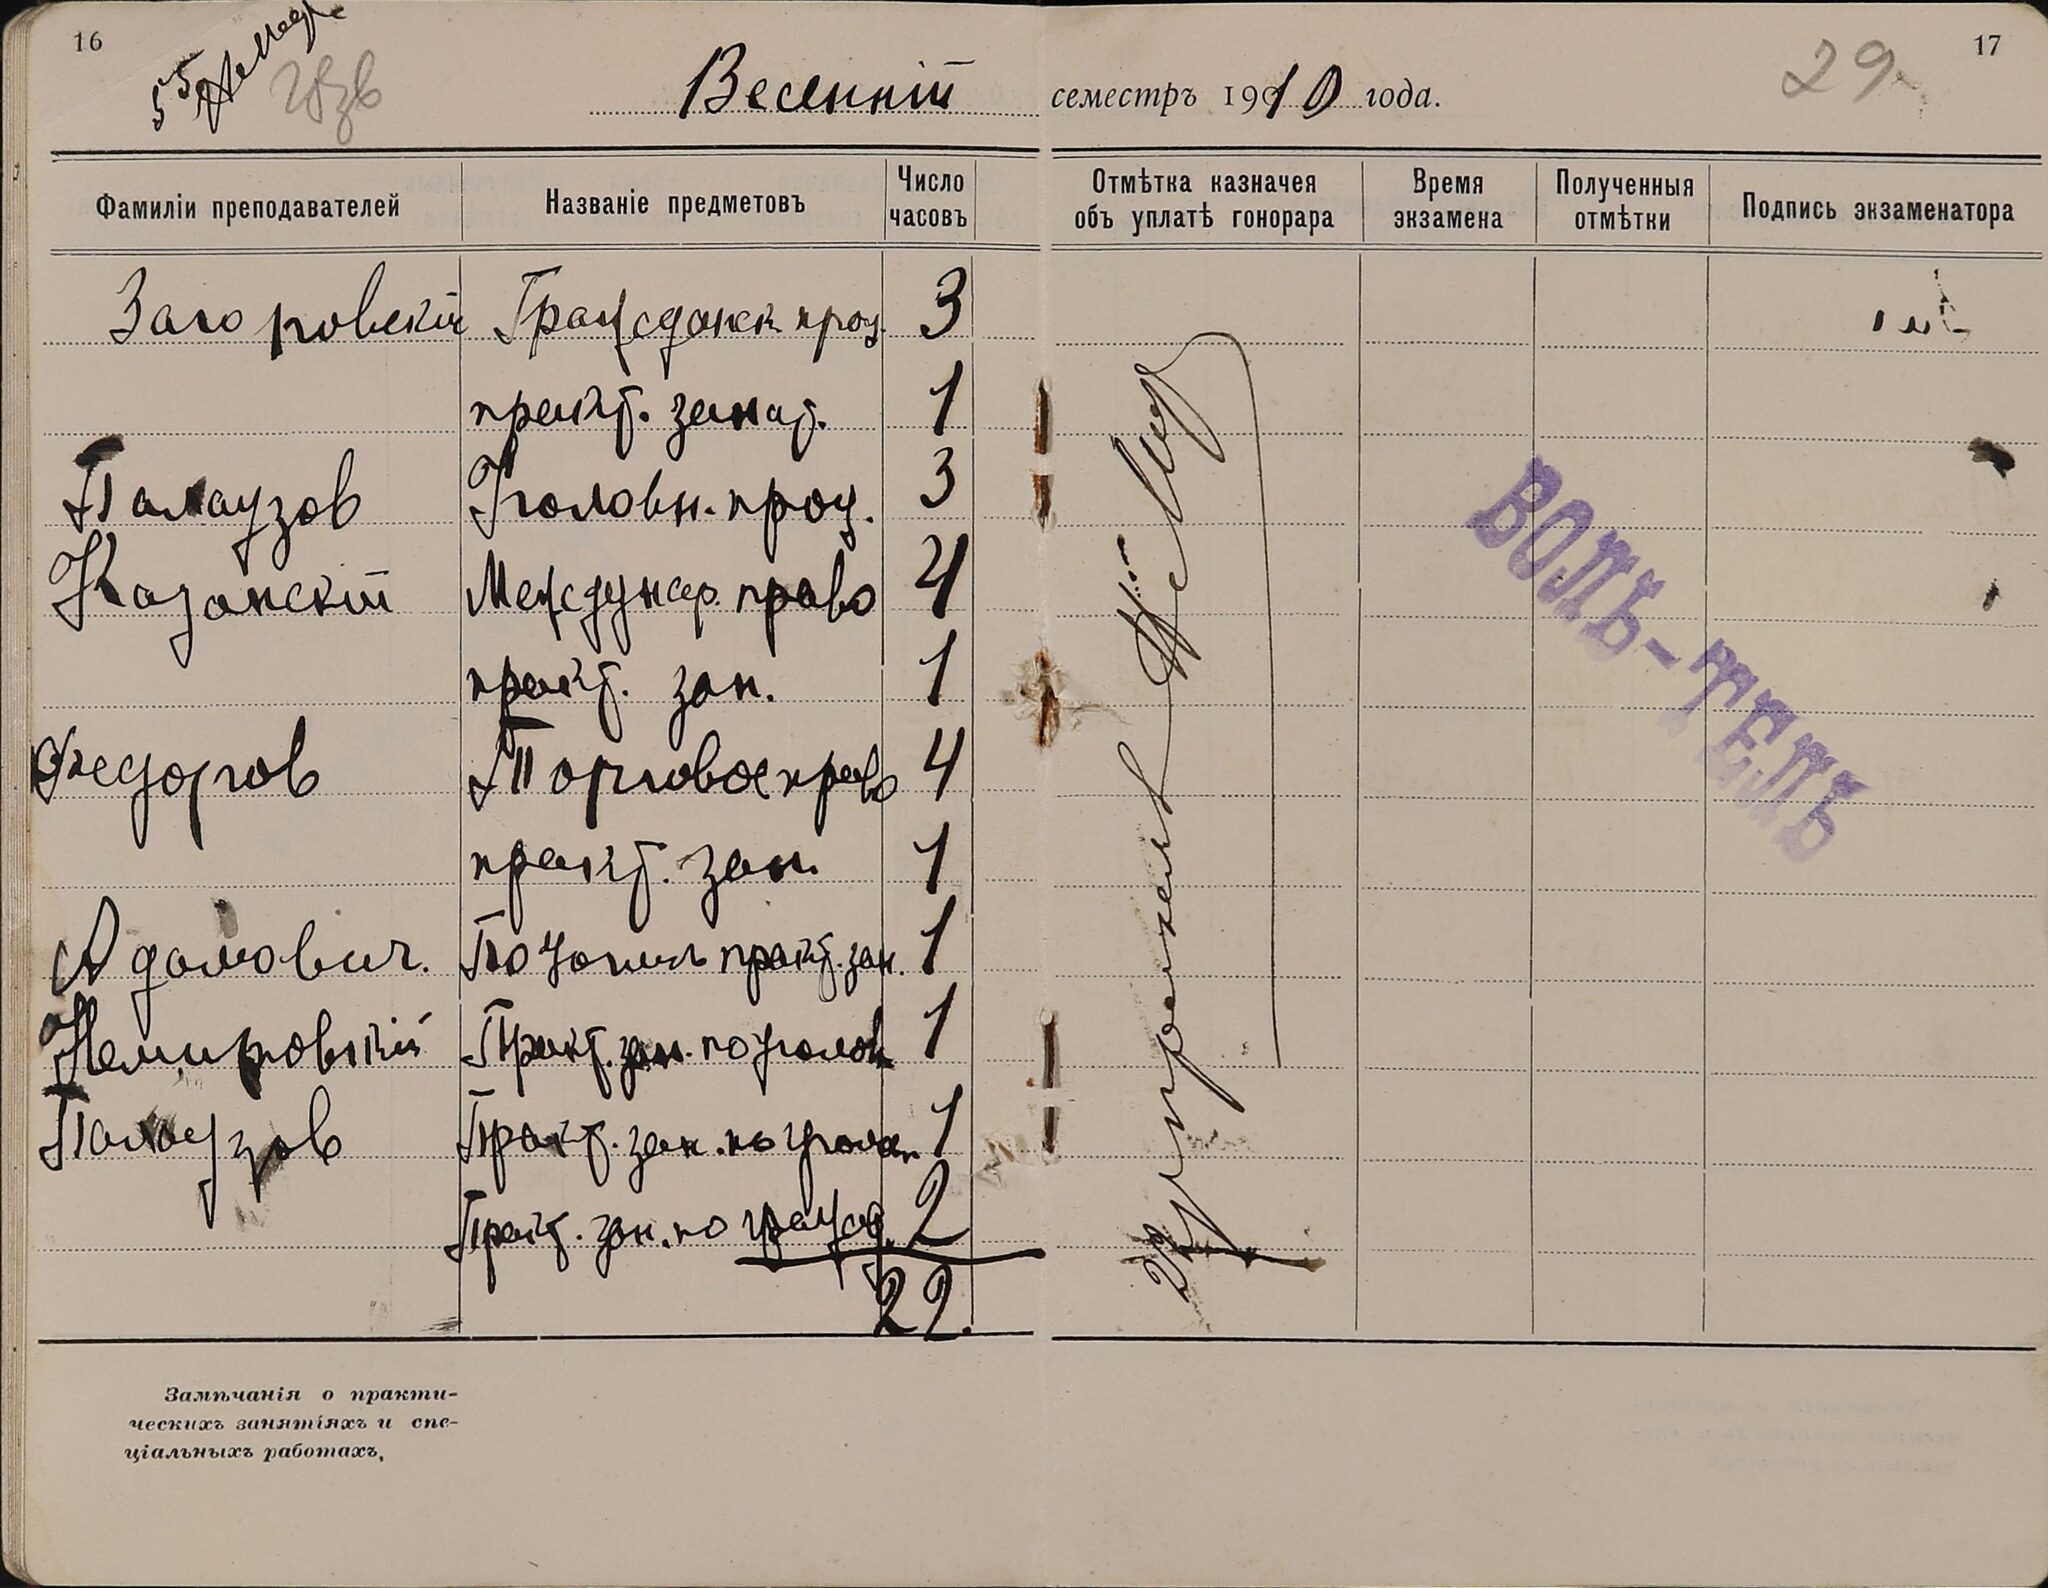 16
55
Весенній семестръ 1910 года.
29
17
Фамиліи преподавателей Названіе предметовъ Число часовъ Отмѣтка казначея объ уплатѣ гонорара Время экзамена Полученныя отмѣтки Подпись экзаменатора
Загоровскій Гражданск. проц. 3
практ. занят. 1
Палаузов Уголовн. проц. 3
Казанскій Междунар. право 4
практ. зан. 1
Федоров Торговое право 4
практ. зан. 1
Адамович. практ. зан. 1
Немировскій Практ. зан. по уголов 1
Палаузов Практ. зан. по уголов. 1
Практ. зан. по гражд. 2
22.
ВОЛЬ-ТЕЛЬ
Замѣчанія о практи-
ческихъ занятіяхъ и спе-
ціальныхъ работахъ,